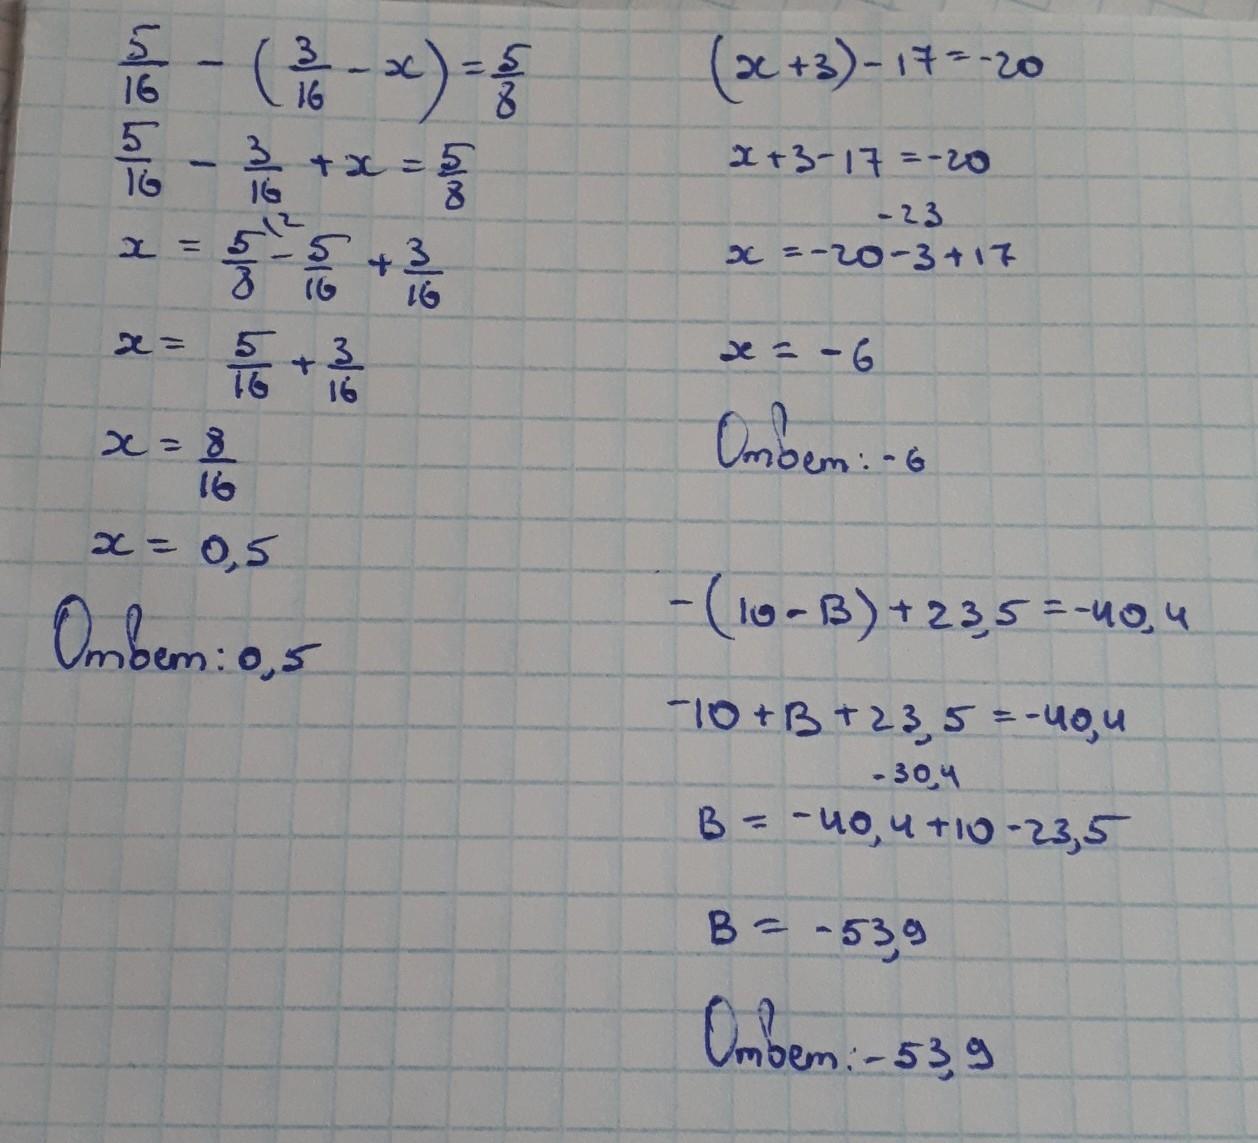 5/16 - (3/16 - x) = 5/8
5/16 - 3/16 + x = 5/8
x = 5/8 \2 - 5/16 + 3/16
x = 5/16 + 3/16
x = 8/16
x = 0,5
Ответ: 0,5
(x+3) - 17 = -20
x+3-17 = -20
-23
x = -20-3+17
x = -6
Ответ: -6
-(10-B)+23,5 = -40,4
-10+B+23,5 = -40,4
-30,4
B = -40,4+10-23,5
B = -53,9
Ответ: -53,9